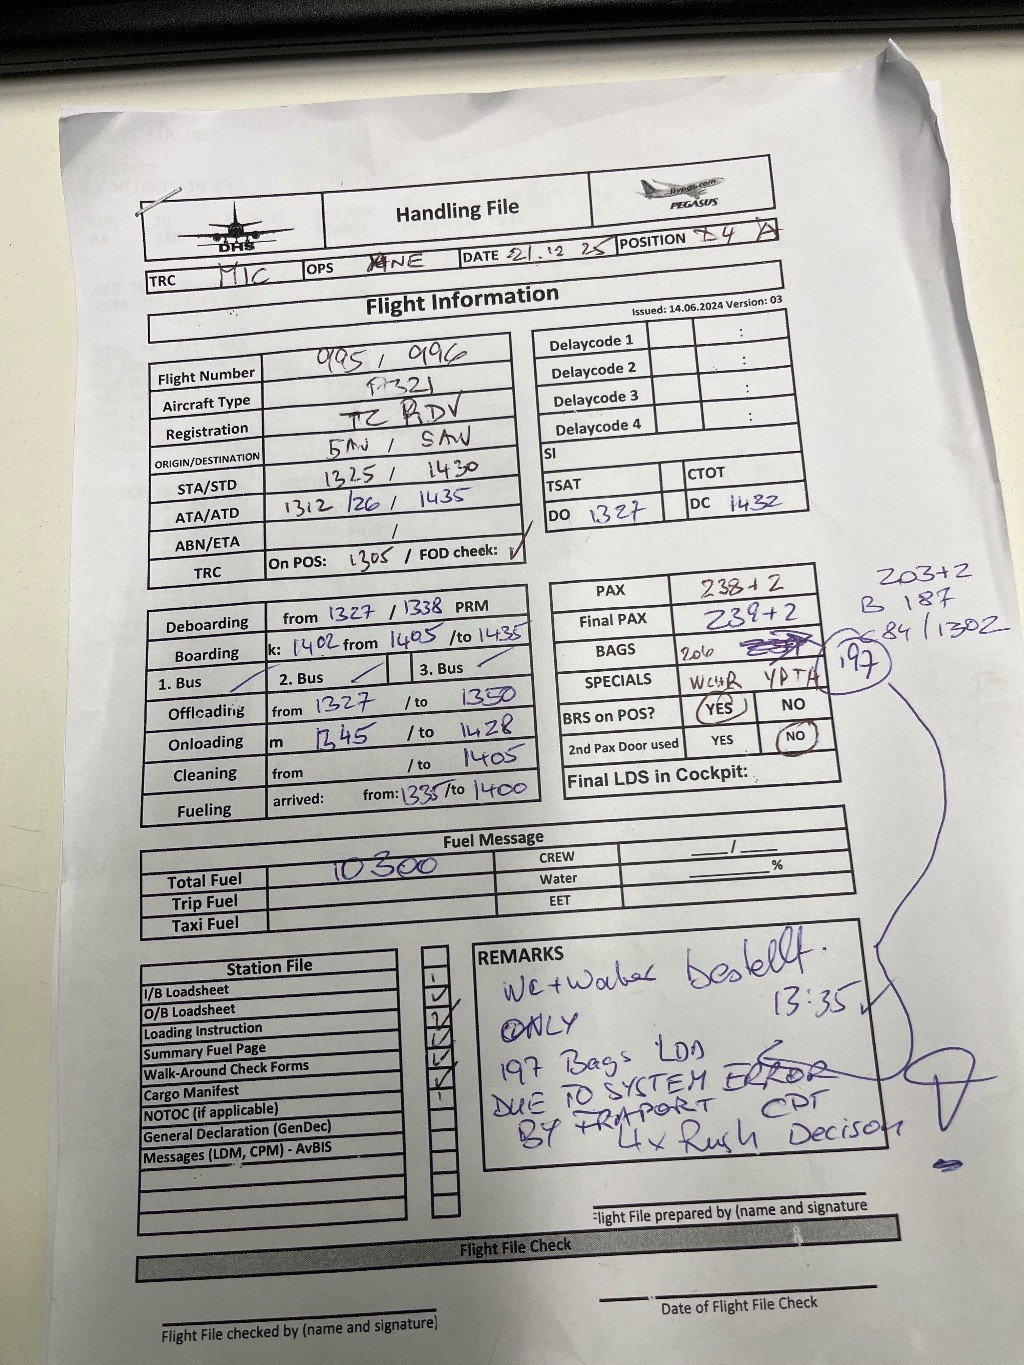 DHS
Handling File
flypgs.com
PEGASUS
TRC MIC OPS ANE DATE 21.12 25 POSITION A
Flight Information
Issued: 14.06.2024 Version: 03
Flight Number 995 / 996
Aircraft Type A321
Registration TC RDV
ORIGIN/DESTINATION SAW / SAW
STA/STD 1325 / 1430
ATA/ATD 1312 /26 / 1435
ABN/ETA /
TRC On POS: 1305 / FOD check: ✓
Delaycode 1 :
Delaycode 2 :
Delaycode 3 :
Delaycode 4 :
SI
TSAT CTOT
DO 1327 DC 1432
Deboarding from 1327 / 1338 PRM
Boarding k: 1402 from 1405 /to 1435
1. Bus 2. Bus 3. Bus
Offloading from 1327 / to 1350
Onloading m 1345 / to 1428
Cleaning from / to 1405
Fueling arrived: from: 1335 /to 1400
PAX 238+2
Final PAX 239+2
BAGS 206
SPECIALS WCHR
BRS on POS? YES NO
2nd Pax Door used YES NO
Final LDS in Cockpit:
203+2
B 187
C 84 / 1302
197
Fuel Message
Total Fuel 10300 CREW ____/____
Trip Fuel Water ________%
Taxi Fuel EET
Station File
I/B Loadsheet
O/B Loadsheet
Loading Instruction
Summary Fuel Page
Walk-Around Check Forms
Cargo Manifest
NOTOC (if applicable)
General Declaration (GenDec)
Messages (LDM, CPM) - AvBIS
REMARKS
WC + Water bestellt.
13:35
ONLY
197 Bags LDD
DUE TO SYSTEM ERROR
BY FRAPORT CPT
4x Rush Decison
Flight File prepared by (name and signature
Flight File Check
Flight File checked by (name and signature)
Date of Flight File Check